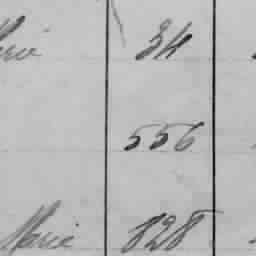 34
556
Marie 828